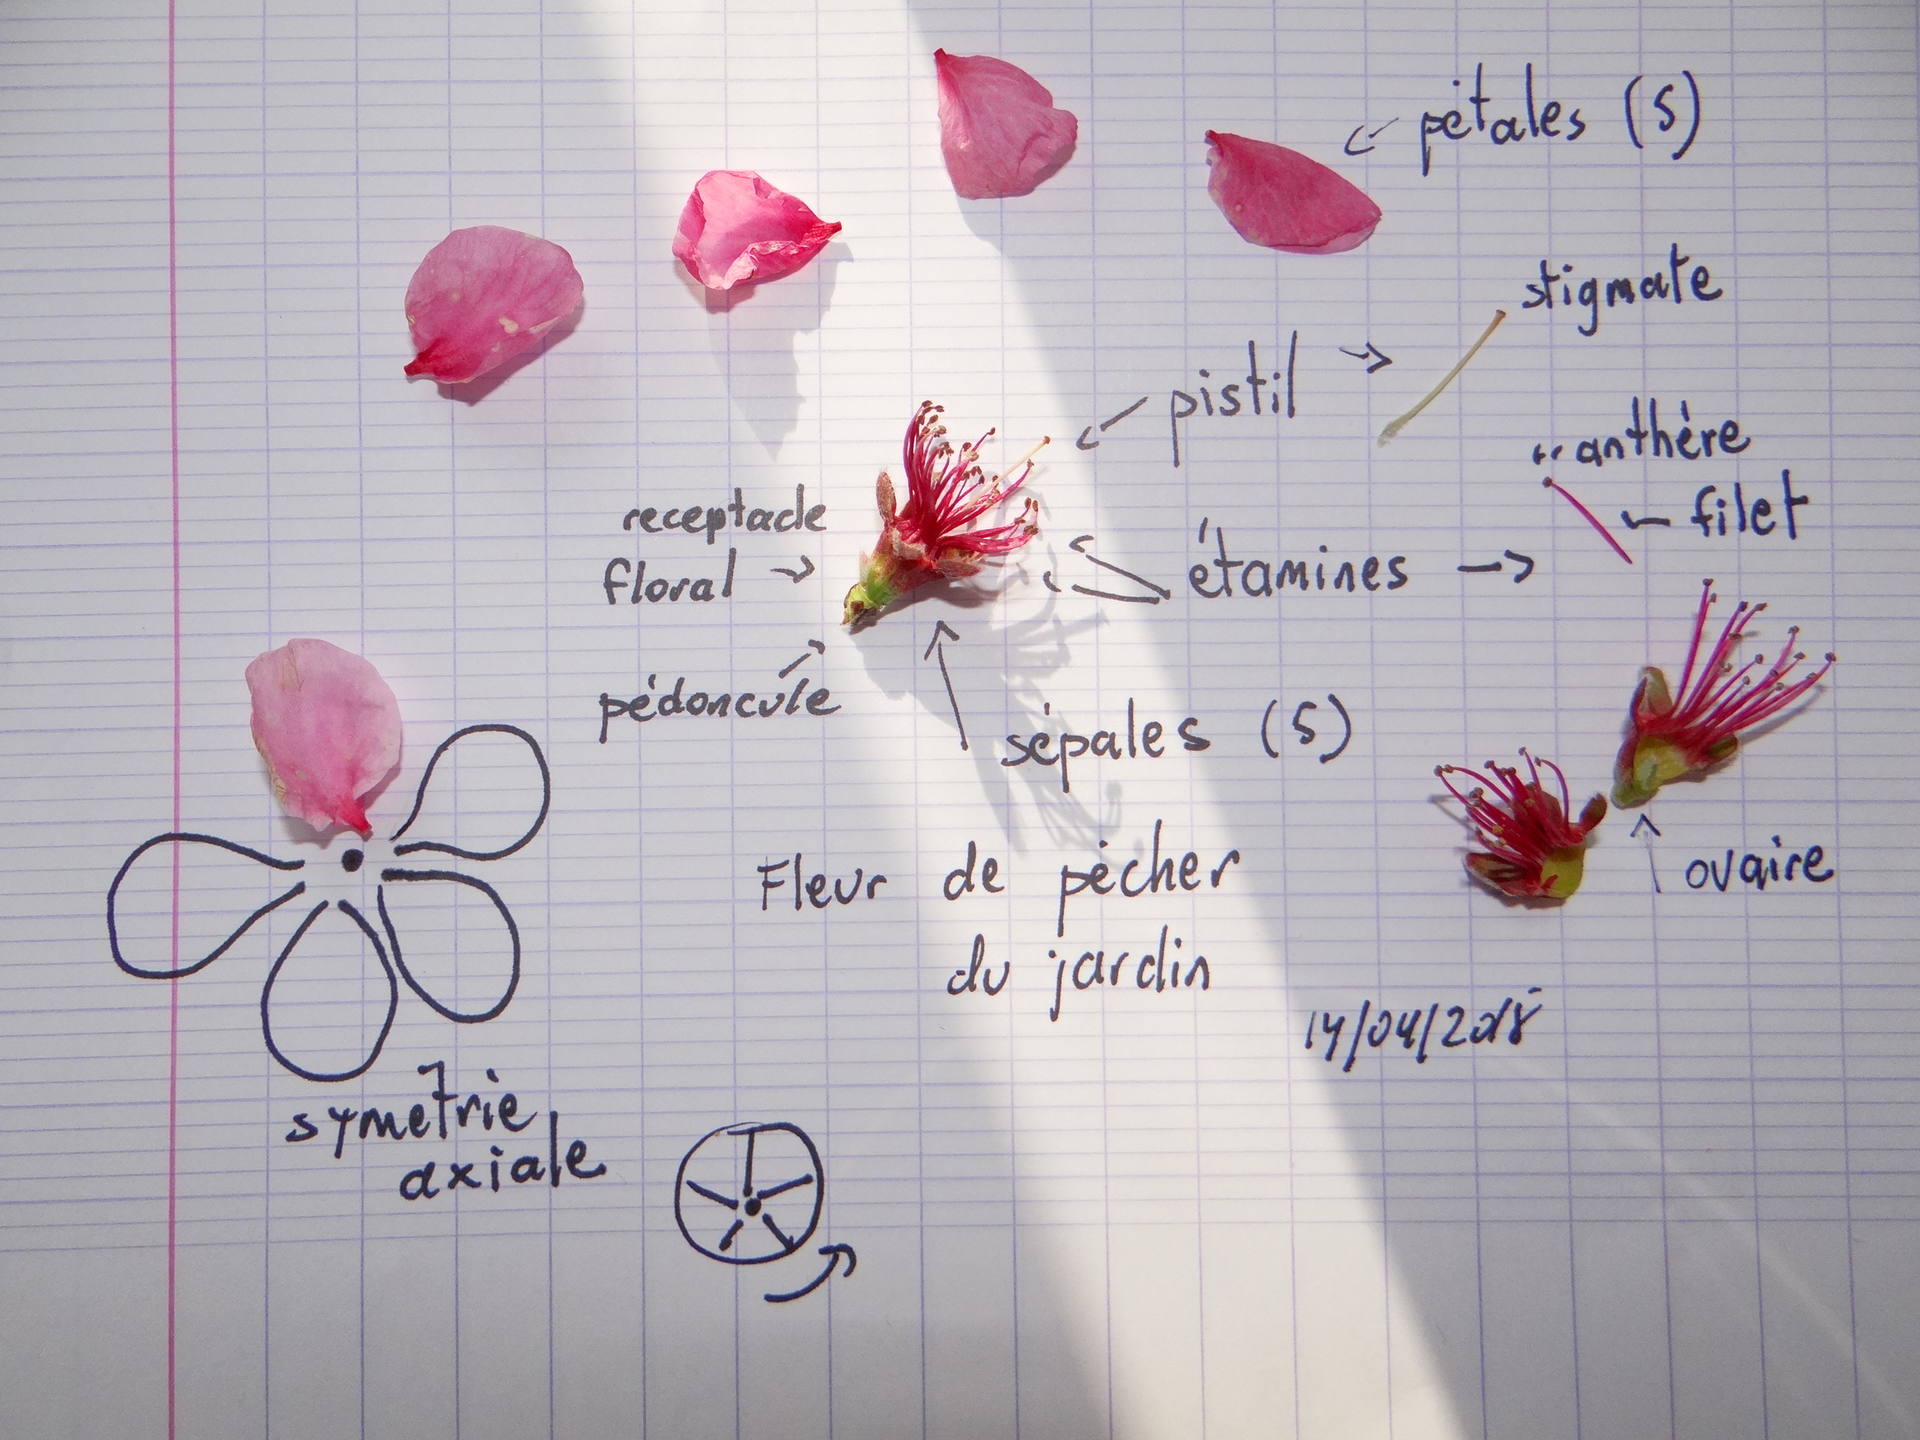 pétales (5)
stigmate
pistil
anthère
filet
receptacle
floral
étamines
pédoncule
sépales (5)
ovaire
Fleur de pêcher
du jardin
14/04/2018
symétrie
axiale